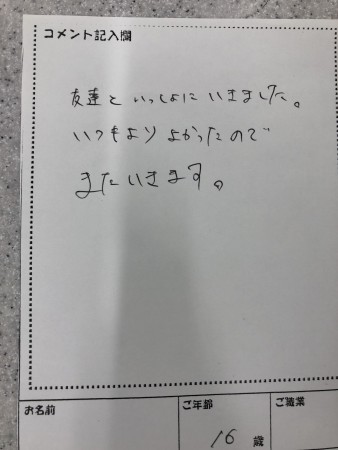 コメント記入欄
友達といっしょにいきました。
いつもよりよかったので
またいきます。
お名前
ご年齢
ご職業
16歳